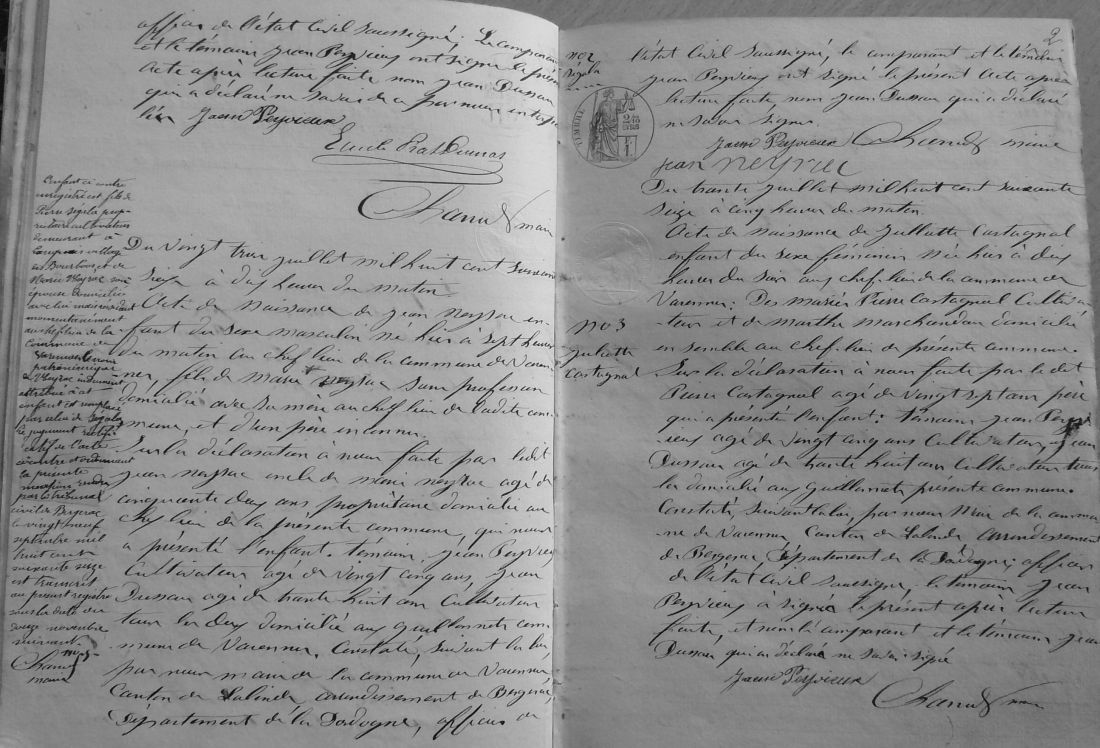 officier de l'état civil soussigné. Le comparant
et le témoin Jean Peyrieux ont signé le présent
acte après lecture faite non Jean Dussau
qui a déclaré ne savoir de ce par nous interpe
llé
Jean Peyrieux
Chanut maire
Enfant ci contre
enregistré est fils de
Pierre Ségala prop-
riétaire cultivateur
demeurant à
village
de
Marie Neyrac son
épouse domiciliée
avec lui mais résidant
momentanément
au chef lieu de la
commune de
Varennes le nom
patronimique
de Neyrac indument
attribué à cet
enfant est remplacé
par celui de Ségala
le jugement rectifi
catif de l'acte
ci contre et ordonnant
la présente
mention rendu
par le tribunal
civil de Bergerac
le vingt neuf
septembre mil
huit cent
soixante seize
est transcrit
au présent registre
sous la date du
novembre
suivant
Chanut
maire
Du vingt trois juillet mil huit cent soixante
seize à dix heures du matin.
Acte de naissance de Jean Neyrac en-
fant du sexe masculin né hier à sept heures
du matin au chef lieu de la commune de Varen
nes, fils de Marie Neyrac sans profession
domiciliée avec sa mère au chef lieu de ladite com
mune, et d'un père inconnu.
Sur la déclaration à nous faite par ledit
Jean Neyrac oncle de Marie Neyrac agé de
cinquante deux ans, propriétaire domicilié au
chef lieu de la présente commune, qui nous
a présenté l'enfant. témoins, Jean Peyrieux
Cultivateur agé de vingt cinq ans, Jean
Dussau agé de trente huit ans Cultivateur
tous les deux domiciliés aux Guillonnets com
mune de Varennes. Constaté, suivant la loi
par nous maire de la commune de Varennes
Canton de Lalinde, arrondissement de Bergerac,
Département de la Dordogne, officier de
2
No 2
Ségala
TIMBRE
l'état civil soussigné, le comparant et le témoin
Jean Peyrieux ont signé le présent Acte après
lecture faite, non Jean Dussau qui a déclaré
ne savoir signer.
Jean Peyrieux Chanut maire
jean neyrac
Du trente juillet mil huit cent soixante
seize à cinq heures du matin.
No 3
Juliette
Castagnal
Acte de naissance de Juliette Castagnal
enfant du sexe féminin née hier à dix
heures du soir au chef lieu de la commune de
Varennes: Des mariés Pierre Castagnal Cultiva
-teur et de Marthe Marchandou domiciliés
ensemble au chef lieu de présente commune.
Sur la déclaration à nous faite par le dit
Pierre Castagnal agé de vingt sept ans père
qui a présenté l'enfant: témoins Jean Peyr
ieux agé de vingt cinq ans Cultivateur, et Jean
Dussau agé de trente huit ans Cultivateur tous
les domiciliés aux Guillonnets présente commune.
Constaté, suivant la loi, par nous Maire de la commu
ne de Varennes, Canton de Lalinde arrondissement
de Bergerac, Département de la Dordogne; officier
de l'état Civil soussigné, le témoin Jean
Peyrieux à signé le présent après lecture
faite, et non le comparant et le témoin Jean
Dussau qui a déclaré ne savoir signé
Jean Peyrieux
Chanut maire